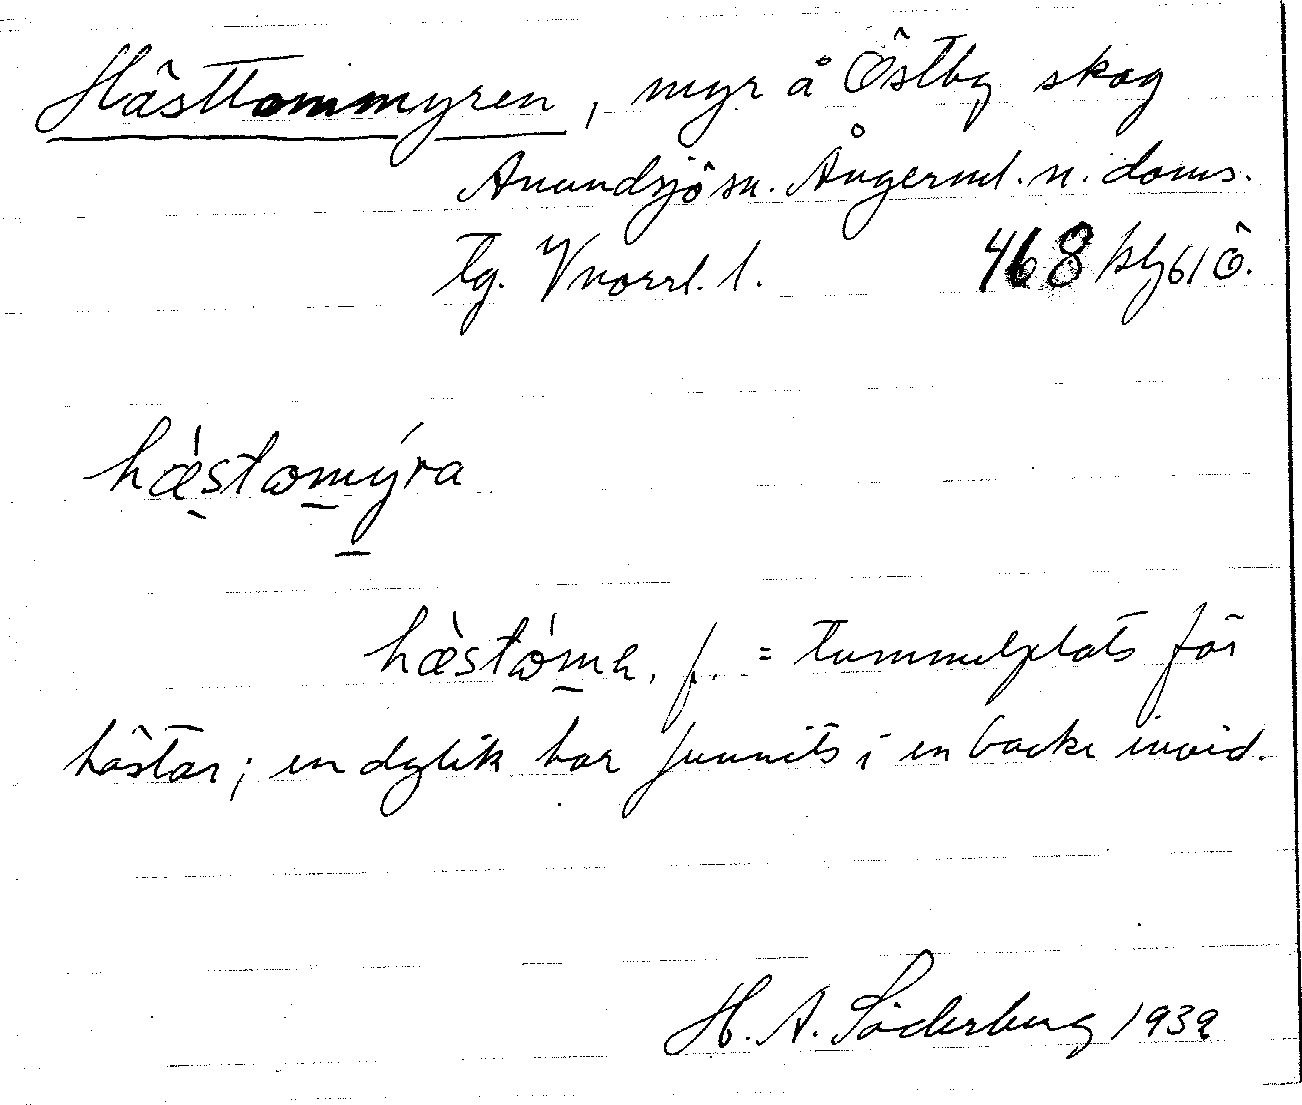 Hästtommyren, myr å Östby skog
Anundsjö sn. Ångerml. n. doms.
tg. Vnorrl. l. 468 kbg 61 Ö.
hæ̀stɷmýra
hæ̀stɷ́ma, f. = tummelplats för
hästar; en dylik har funnits i en backe invid.
H. A. Söderberg 1939